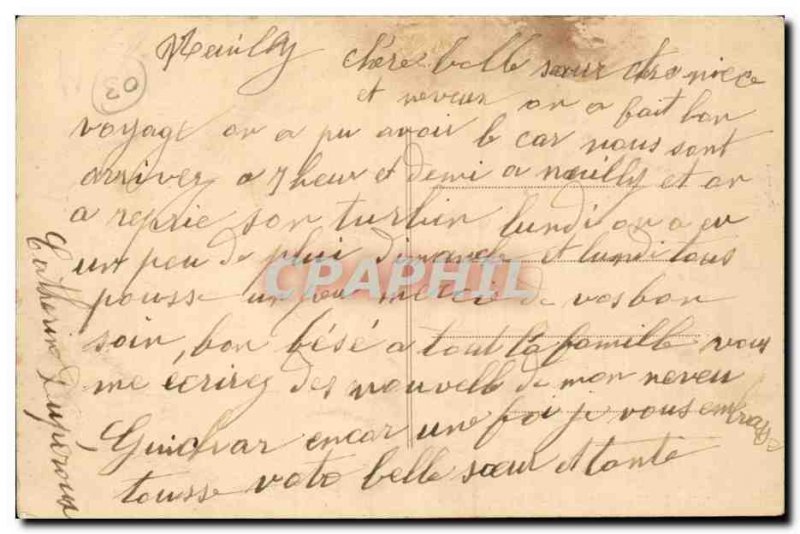 Neuilly chère belle sœur chro niece
et neveux on a fait bon
voyage on a pu avoir le car nous sont
arrivez a 7 heur et demi a neuilly et on
a reprie son turbin lundi on a eu
un peu de plui dimanche et lundi tous
pousse un peu merci de vos bon
soin, bon bésé a tout la famille vous
me ecrirez des nouvelle de mon neveu
encor une foi je vous embrasse
tousse votr belle sœur et tante
Catherine Dupéroux
03
CPAPHIL